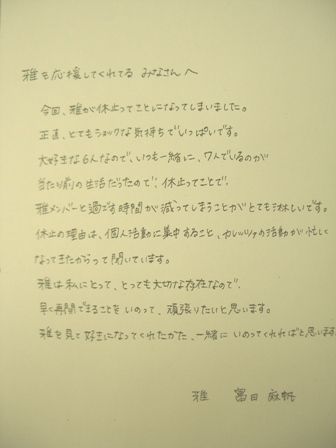 雅を応援してくれてる みなさんへ
今回、雅が休止ってことになってしまいました。
正直、とてもショックな気持ちでいっぱいです。
大好きな6人なので、いつも一緒に、7人でいるのが
当たり前の生活だったので、休止ってことで、
雅メンバーと過ごす時間が減ってしまうことがとても淋しいです。
休止の理由は、個人活動に集中すること、カレッジの活動が忙しく
なってきたからって聞いています。
雅は私にとって、とっても大切な存在なので、
早く再開できることをいのって、頑張りたいと思います。
雅を見て好きになってくれたかた、一緒に いのってくれればと思います
雅 冨田 麻帆